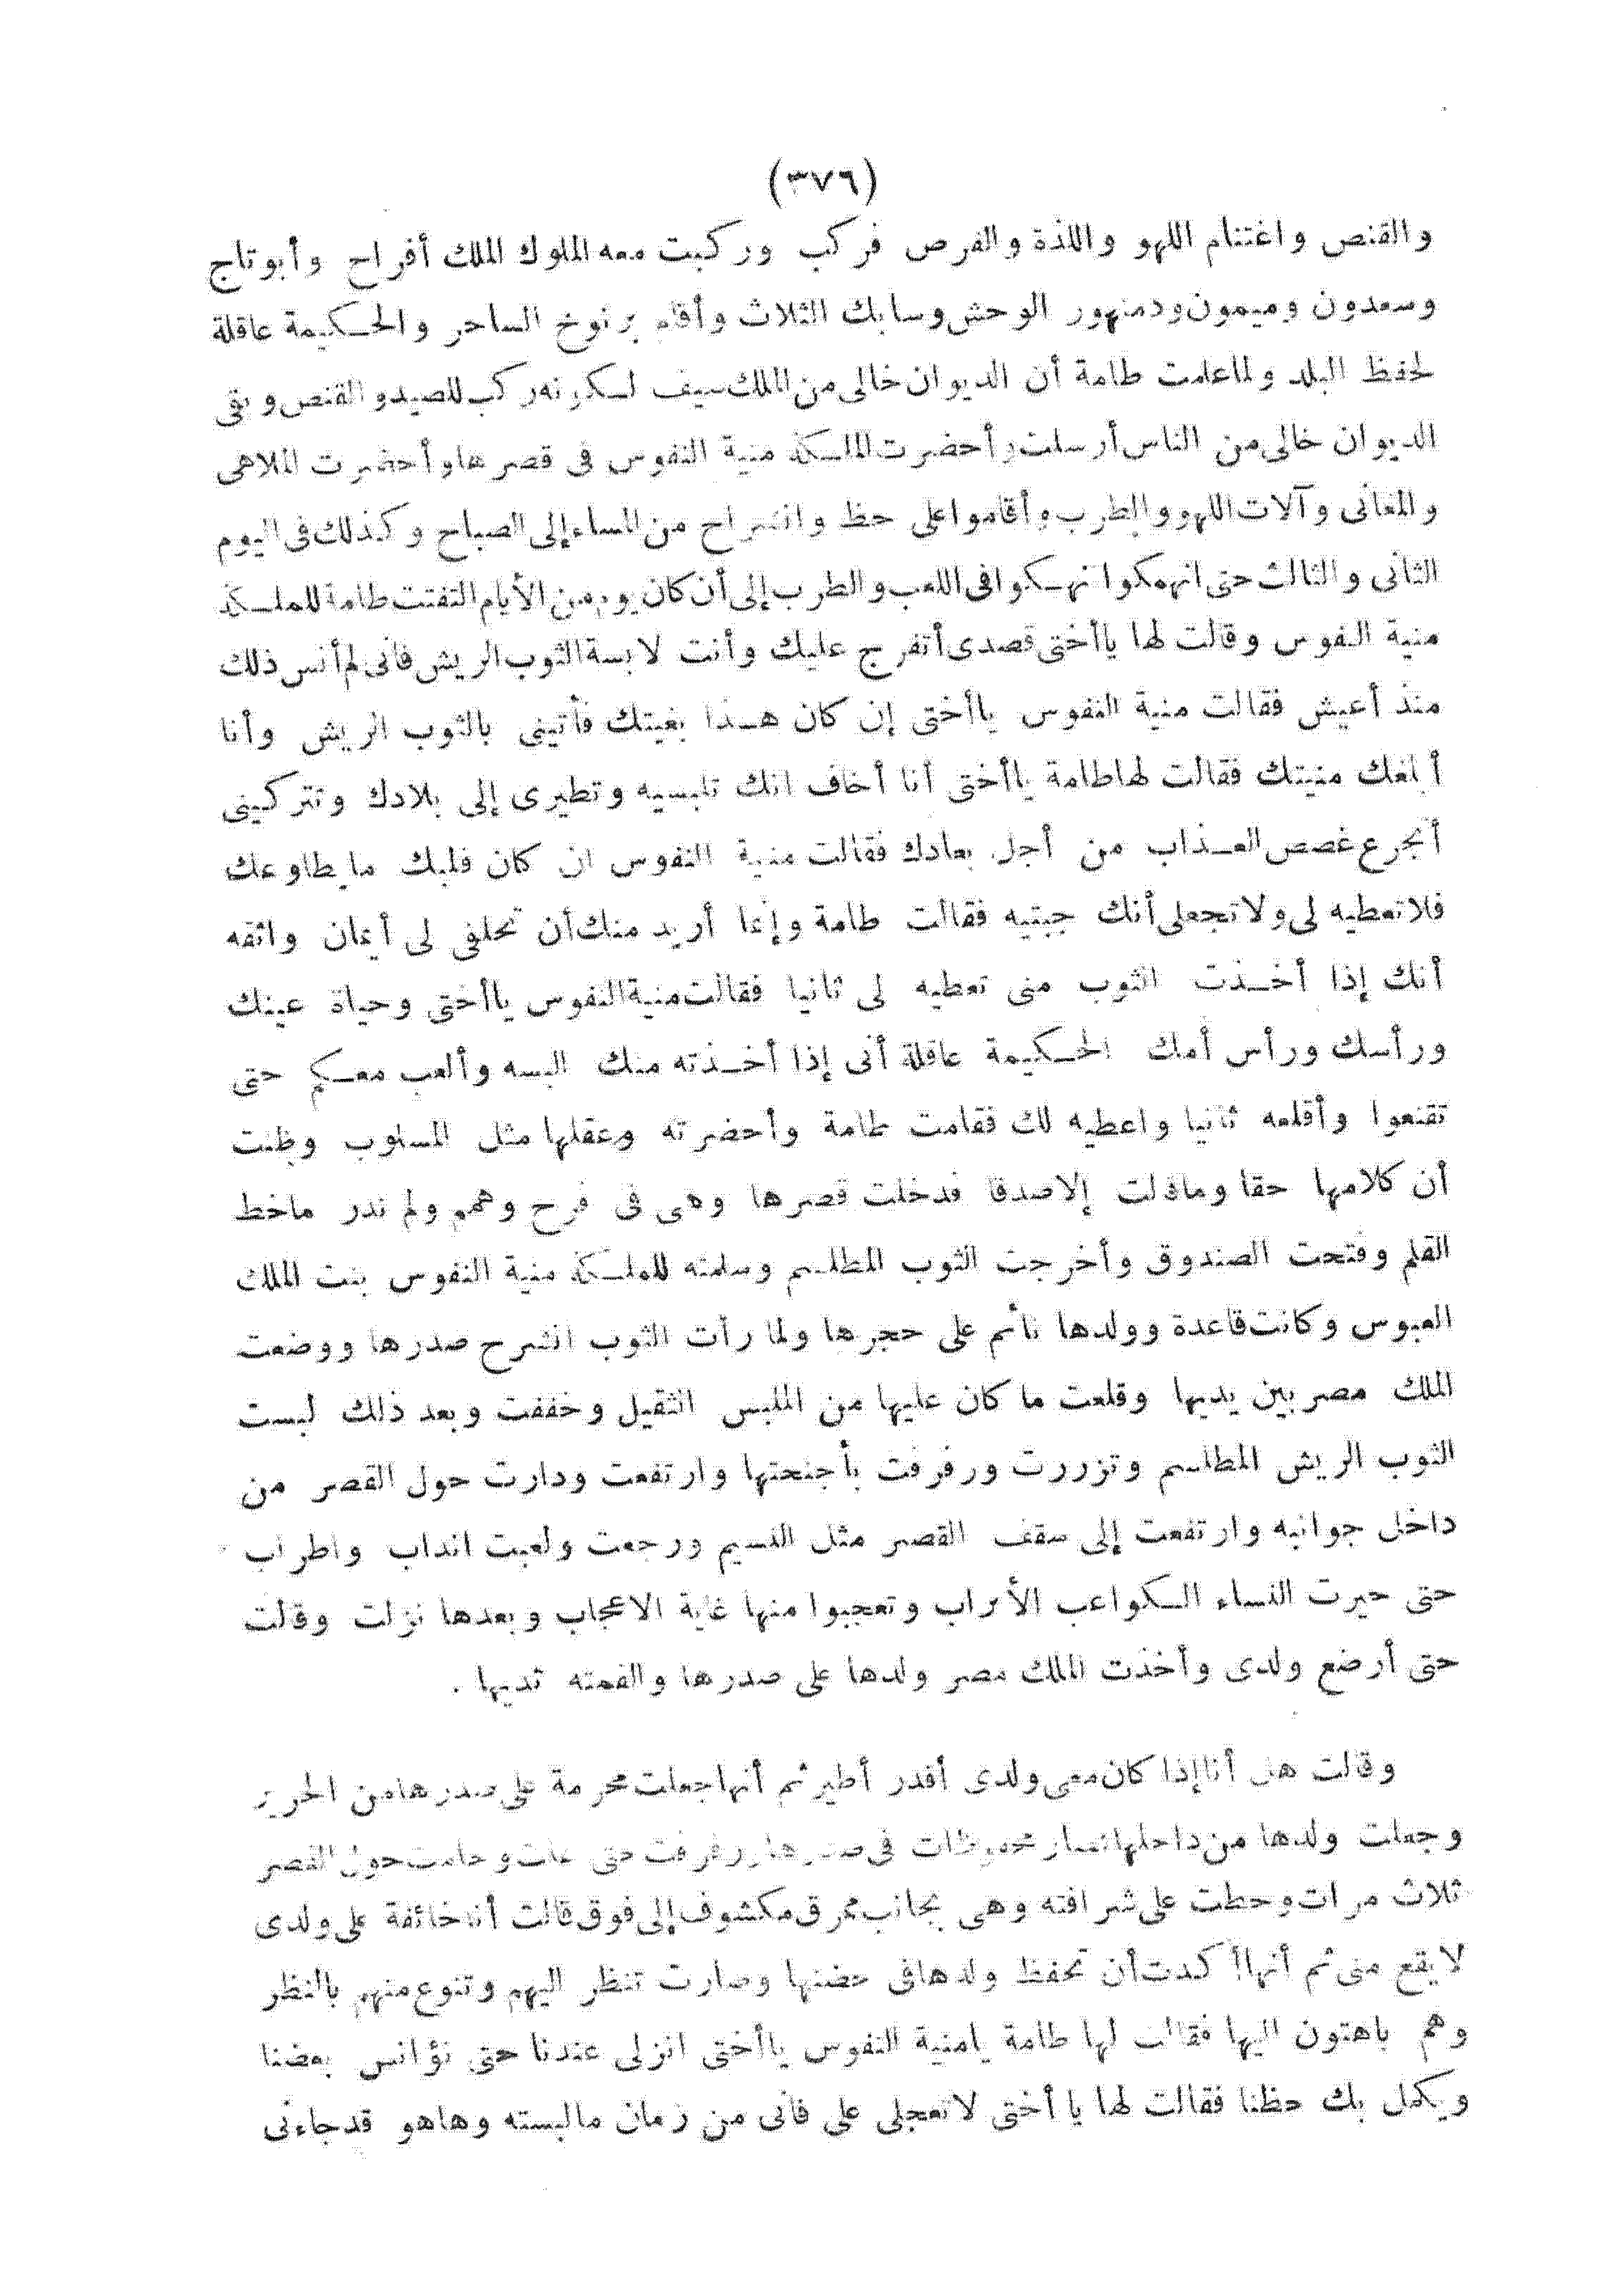 (٣٧٦)
والقنص واغتنام اللهو واللذة والفرص فركب وركبت معه الملوك الملك أفراح وأبو تاج
وسعدون وميمون ودمنهور الوحش وسابك الثلاث وأقام برنوخ الساحر والحكيمة عاقلة
لحفظ البلد ولما علمت طامة أن الديوان خالى من الملك سيف لكونه ركب للصيد والقنص وبقى
الديوان خالى من الناس أرسلت وأحضرت الملكة منية النفوس فى قصرها وأحضرت الملاهى
والمغانى وآلات اللهو والطرب وأقاموا على حظ وانشراح من المساء إلى الصباح وكذلك فى اليوم
الثانى والثالث حتى انهمكوا نهكوا فى اللعب والطرب إلى أن كان يوم من الأيام التفتت طامة للملكة
منية النفوس وقالت لها يا أختى قصدى أتفرج عليك وأنت لابسة الثوب الريش فأنى لم أنس ذلك
منذ أعيش فقالت منية النفوس يا أختى إن كان هذا بغيتك فأتينى بالثوب الريش وأنا
أبلغك منيتك فقالت لها طامة يا أختى أنا أخاف انك تلبسيه وتطيرى إلى بلادك وتتركينى
أتجرع غصص العذاب من أجل بعادك فقالت منية النفوس ان كان قلبك ما يطاوعك
فلا تعطيه لى ولا تجعلى أنك جبتيه فقالت طامة وإنما أريد منك أن تحلفى لى أيمان واثقه
أنك إذا أخذت الثوب منى تعطيه لى ثانيا فقالت منية النفوس يا أختى وحياة عينك
ورأسك ورأس أمك الحكيمة عاقلة أنى إذا أخذته منك البسه وألعب معكم حتى
تقنعوا وأقلعه ثانيا واعطيه لك فقامت طامة وأحضرته وعقلها مثل المسلوب وظنت
أن كلامها حقا وما قالت إلا صدقا فدخلت قصرها وهى فى فرح وهم ولم تدر ماخط
القلم وفتحت الصندوق وأخرجت الثوب المطلسم وسلمته للملكة منية النفوس بنت الملك
العبوس وكانت قاعدة وولدها نائم على حجرها ولما رأت الثوب انشرح صدرها ووضعت
الملك مصر بين يديها وقلعت ما كان عليها من الملبس الثقيل وخففت وبعد ذلك لبست
الثوب الريش المطلسم وتزررت ورفرفت بأجنحتها وارتفعت ودارت حول القصر من
داخل جوانبه وارتفعت إلى سقف القصر مثل النسيم ورجعت ولعبت انداب واطراب
حتى حيرت النساء الكواعب الأتراب وتعجبوا منها غاية الاعجاب وبعدها نزلت وقالت
حتى أرضع ولدى وأخذت الملك مصر ولدها على صدرها والقمته ثديها .
وقالت هل أنا إذا كان معى ولدى أقدر أطير ثم أنها جعلت محرمة على صدرها من الحرير
وجعلت ولدها من داخلها فى صدرها ورفرفت حتى علت وحامت حول القصر
ثلاث مرات وحطت على شرافته وهى بجانب ممرق مكشوف إلى فوق قالت أنا خائفة على ولدى
لا يقع منى ثم أنها أكدت أن تحفظ ولدها فى حضنها وصارت تنظر اليهم وتنوع منهم بالنظر
وهم باهتون اليها فقالت لها طامة يا منية النفوس يا أختى انزلى عندنا حتى نؤانس بعضنا
ويكمل بك حظنا فقالت لها يا أختى لا تعجلى على فأنى من زمان مالبسته وهاهو قد جاءنى